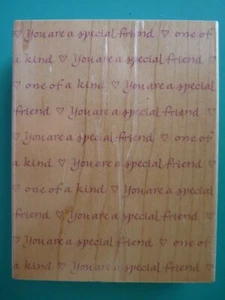 ♡ You are a special friend ♡ one of
a kind ♡ You are a special friend
♡ one of a kind ♡ You are a special
friend ♡ You are a special friend
♡ You are a special friend ♡ one of
a kind ♡ You are a special friend
♡ one of a kind ♡ You are a special
friend ♡ You are a special friend
♡ You are a special friend ♡ one of
a kind ♡ You are a special friend